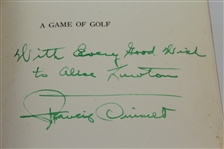 A GAME OF GOLF
With Every Good Wish
to Alice
Francis Ouimet